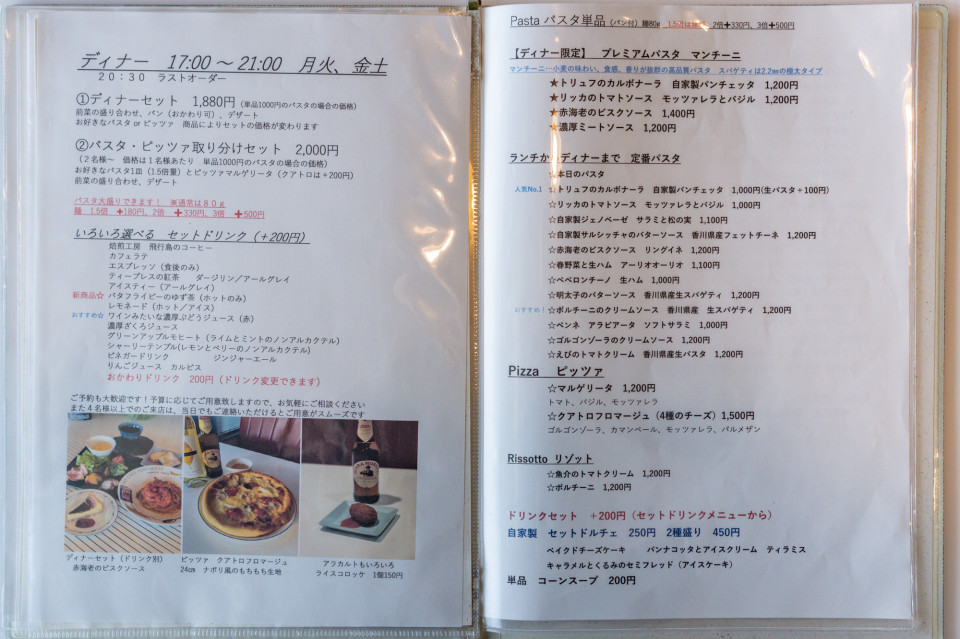 ディナー　17:00 ～ 21:00　月火、金土
20：30　ラストオーダー
①ディナーセット　1,880円（単品1000円のパスタの場合の価格）
前菜の盛り合わせ、パン（おかわり可）、デザート
お好きなパスタ or ピッツァ　商品によりセットの価格が変わります
②パスタ・ピッツァ取り分けセット　2,000円
（２名様～　価格は１名様あたり　単品1000円のパスタの場合の価格）
お好きなパスタ1皿（1.5倍量）とピッツァマルゲリータ（クアトロは＋200円）
前菜の盛り合わせ、デザート
パスタ大盛りできます！　※通常は８０ｇ
麺　1.5倍　✚180円、2倍　✚330円、3倍　✚500円
いろいろ選べる　セットドリンク（＋200円）
焙煎工房　飛行島のコーヒー
カフェラテ
エスプレッソ（食後のみ）
ティープレスの紅茶　ダージリン／アールグレイ
アイスティー（アールグレイ）
新商品☆　バタフライピーのゆず茶（ホットのみ）
レモネード（ホット／アイス）
おすすめ☆　ワインみたいな濃厚ぶどうジュース（赤）
濃厚ざくろジュース
グリーンアップルモヒート（ライムとミントのノンアルカクテル）
シャーリーテンプル(レモンとベリーのノンアルカクテル)
ビネガードリンク　ジンジャーエール
りんごジュース　カルピス
おかわりドリンク　200円（ドリンク変更できます）
ご予約も大歓迎です！予算に応じてご用意致しますので、お気軽にご相談ください
また４名様以上でのご来店は、当日でもご連絡いただけるとご用意がスムーズです
ディナーセット（ドリンク別）
赤海老のビスクソース
ピッツァ　クアトロフロマージュ
24㎝　ナポリ風のもちもち生地
アラカルトもいろいろ
ライスコロッケ　1個150円
Pasta パスタ単品（パン付）麺80g　1.5倍は　2倍✚330円、3倍✚500円
【ディナー限定】　プレミアムパスタ　マンチーニ
マンチーニ…小麦の味わい、食感、香りが抜群の高品質パスタ　スパゲティは2.2㎜の極太タイプ
★トリュフのカルボナーラ　自家製パンチェッタ　1,200円
★リッカのトマトソース　モッツァレラとバジル　1,200円
★赤海老のビスクソース　1,400円
★濃厚ミートソース　1,200円
ランチからディナーまで　定番パスタ
☆本日のパスタ
人気No.1　☆トリュフのカルボナーラ　自家製パンチェッタ　1,000円(生パスタ＋100円)
☆リッカのトマトソース　モッツァレラとバジル　1,000円
☆自家製ジェノベーゼ　サラミと松の実　1,100円
☆自家製サルシッチャのバターソース　香川県産フェットチーネ　1,200円
☆赤海老のビスクソース　リングイネ　1,200円
☆春野菜と生ハム　アーリオオーリオ　1,100円
☆ペペロンチーノ　生ハム　1,000円
☆明太子のバターソース　香川県産生スパゲティ　1,200円
おすすめ！　☆ポルチーニのクリームソース　香川県産　生スパゲティ　1,200円
☆ペンネ　アラビアータ　ソフトサラミ　1,000円
☆ゴルゴンゾーラのクリームソース　1,200円
☆えびのトマトクリーム　香川県産生パスタ　1,200円
Pizza　ピッツァ
☆マルゲリータ　1,200円
トマト、バジル、モッツァレラ
☆クアトロフロマージュ（4種のチーズ）1,500円
ゴルゴンゾーラ、カマンベール、モッツァレラ、パルメザン
Rissotto リゾット
☆魚介のトマトクリーム　1,200円
☆ポルチーニ　1,200円
ドリンクセット　+200円（セットドリンクメニューから）
自家製　セットドルチェ　250円　2種盛り　450円
ベイクドチーズケーキ　パンナコッタとアイスクリーム　ティラミス
キャラメルとくるみのセミフレッド（アイスケーキ）
単品　コーンスープ　200円